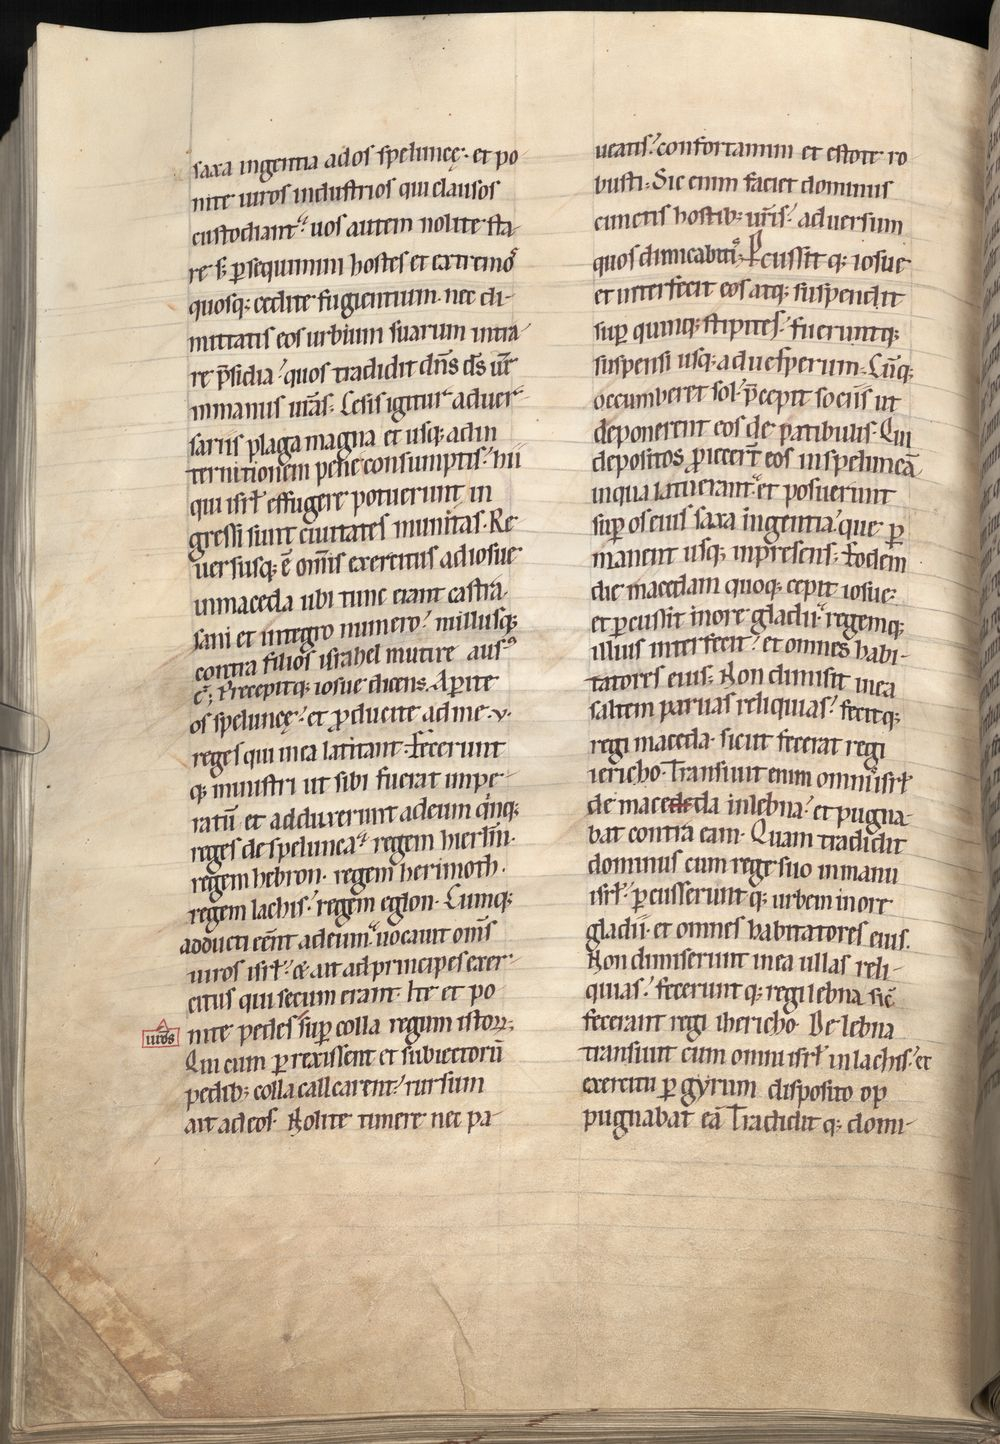 saxa ingentia ad os speluncę. et po
nite uiros industrios qui clausos
custodiant. uos autem nolite sta-
re s; ꝑsequimini hostes et extremoͬ
quosq; cedite fugientium. nec di-
mittatis eos urbium suarum intra-
re p̄sidia. quos tradidit dn̄s ds̄ ur̄
in manus ur̄as. Cesis igitur aduer-
sariis plaga magna et usq; ad in
ternitionem pene consumptis. hii
qui isrł effugere potuerunt in
gressi sunt ciuitates munitas. Re
uersusq; ē om̄is exercitus ad iosue
in maceda ubi tunc erant castra.
sani et integro numero. nullusq;
contra filios israhel mutire ausꝰ
ē; Precepitq; iosue dicens. Aperite
os speluncę. et ꝓducite ad me .v.
reges qui in ea latitant. Fecerunt
q; ministri ut sibi fuerat impe-
ratū. et adduxerunt ad eum q̇nq;
reges de spelunca. regem hierlm̄.
regem hebron. regem herimoth.
regem lachis. regem eglon. Cumq;
adducti eēnt ad eum. uocauit om̄s
uiros isrł. & ait ad principes exer-
citus qui secum erant. Ite et po
nite pedes sup̱ colla regum istoꝝ;
uir̄os
Qui cum ꝑrexissent et subiectorū
pedib; colla calcarent. rursum
ait ad eos. Nolite timere nec pa
ueatis. confortamini et estote ro
busti. Sic enim faciet dominus
cunctis hostib; ur̄is. aduersum
quos dimicabitiͬ. Percussit q; iosue
et interfecit eos atq; suspendit
sup̱ quinq; stipites. fueruntq;
suspensi usq; ad uesperum. Cūq;
occumberet sol. p̄cepit sociis ut
deponerent eos de patibulis. Qui
depositos ꝓiecer̄t eos in speluncā
in qua latuerant. et posuerunt
sup̱ os eius saxa ingentia. que ꝑ
manent usq; in presens. Eodem
die macedam quoq; cepit iosue.
et ꝑcussit in ore gladii. regemq;
illius interfecit. et omnes habi-
tatores eius. Non dimisit in ea
saltem paruas reliquias. fecitq;
regi maceda. sicut fecerat regi
iericho. Transiuit enim omnis isrł
de macededa in lebna. et pugna-
bat contra eam. Quam tradidit
dominus cum rege suo in manu
isrł. ꝑcusserunt q; urbem in ore
gladii. et omnes habitatores eius.
Non dimiserunt in ea ullas reli-
quias. fecerunt q; regi lebna sic̄
fecerant regi ihericho. De lebna
transiuit cum omni isrł in lachis. et
exercitu ꝑ gyrum disposito op̱
pugnabat eā. Tradidit q; domi-